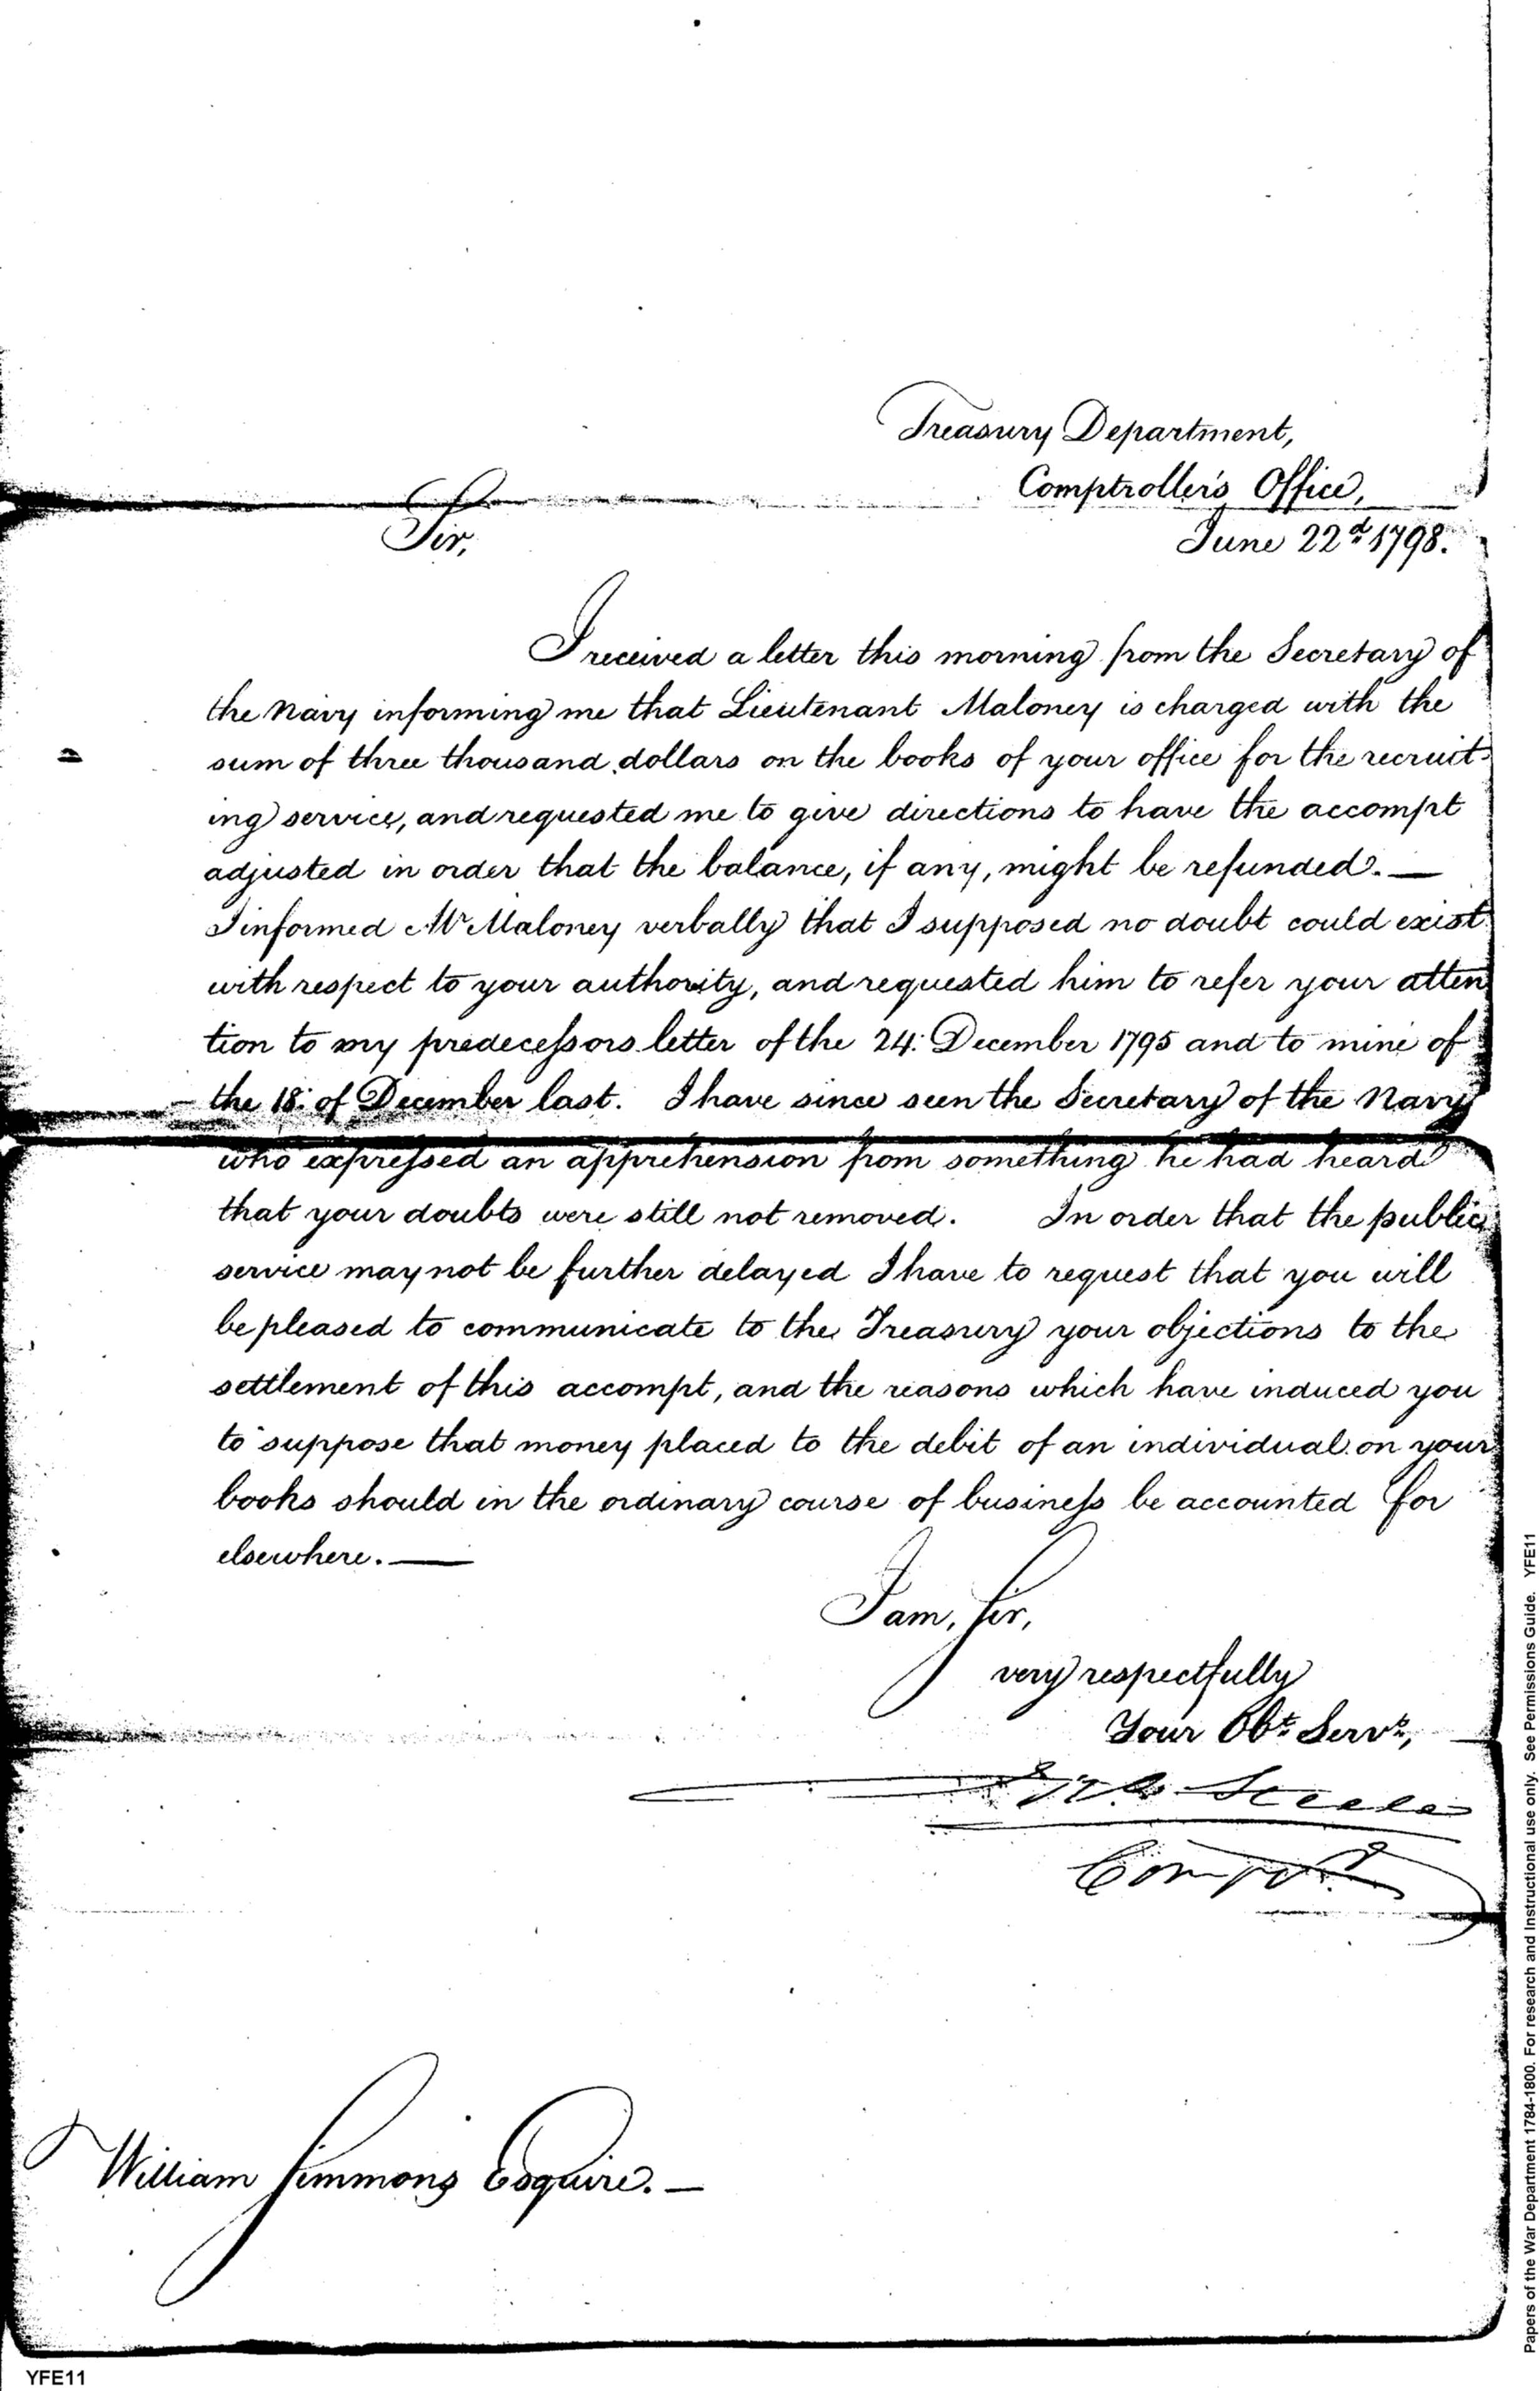 Treasury Department,
Comptroller's Office,
Sir,
June 22d 1798.
I received a letter this morning from the Secretary of
the Navy informing me that Lieutenant Maloney is charged with the
sum of three thousand dollars on the books of your office for the recruit-
ing service, and requested me to give directions to have the accompt
adjusted in order that the balance, if any, might be refunded. —
I informed Mr Maloney verbally that I supposed no doubt could exist
with respect to your authority, and requested him to refer your atten
tion to my predecessors letter of the 24: December 1795 and to mine of
the 18: of December last. I have since seen the Secretary of the Navy
who expressed an apprehension from something he had heard
that your doubts were still not removed. In order that the public
service may not be further delayed I have to request that you will
be pleased to communicate to the Treasury your objections to the
settlement of this accompt, and the reasons which have induced you
to suppose that money placed to the debit of an individual on your
books should in the ordinary course of business be accounted for
elsewhere. —
I am, Sir,
very respectfully
Your Obt Servt,
Jno Steele
Compr
William Simmons Esquire. —
YFE11
Papers of the War Department 1784-1800. For research and Instructional use only. See Permissions Guide. YFE11